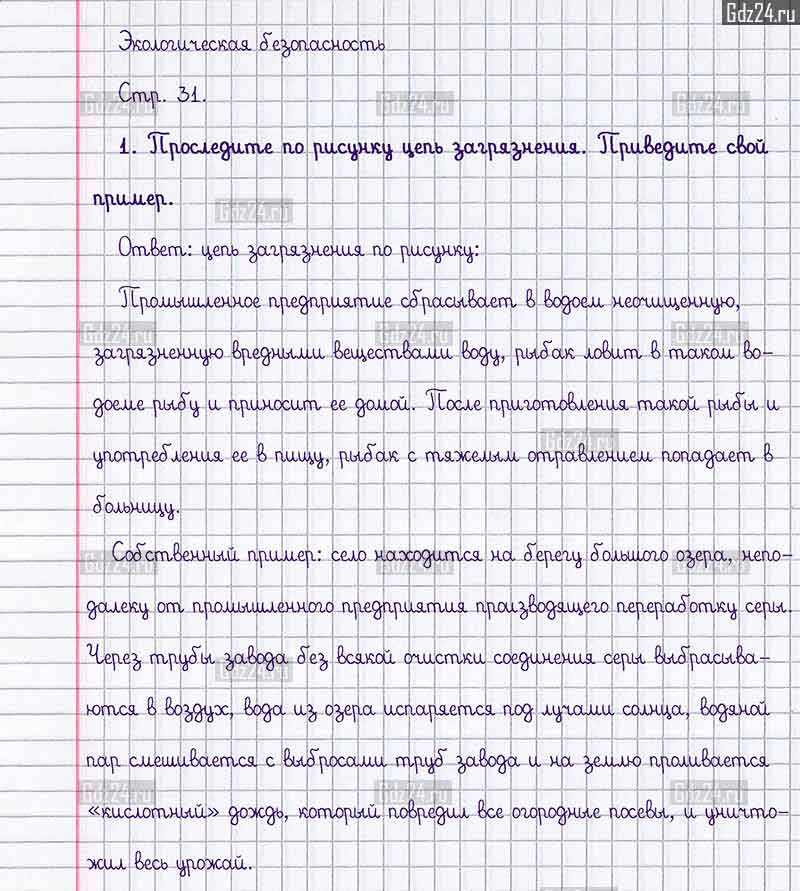 Gdz24.ru
Экологическая безопасность
Стр. 31.
1. Проследите по рисунку цепь загрязнения. Приведите свой
пример.
Ответ: цепь загрязнения по рисунку:
Промышленное предприятие сбрасывает в водоем неочищенную,
загрязненную вредными веществами воду, рыбак ловит в таком во-
доеме рыбу и приносит ее домой. После приготовления такой рыбы и
употребления ее в пищу, рыбак с тяжелым отравлением попадает в
больницу.
Собственный пример: село находится на берегу большого озера, непо-
далеку от промышленного предприятия производящего переработку серы.
Через трубы завода без всякой очистки соединения серы выбрасыва-
ются в воздух, вода из озера испаряется под лучами солнца, водяной
пар смешивается с выбросами труб завода и на землю проливается
«кислотный» дождь, который повредил все огородные посевы, и уничто-
жил весь урожай.